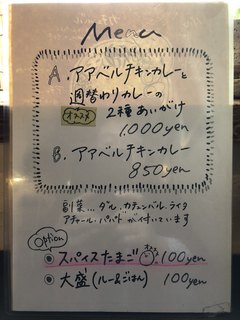 Menu
A. アアベルチキンカレーと
週替わりカレーの
オススメ 2種あいがけ
1,000yen
B. アアベルチキンカレー
850yen
副菜... ダル、カチュンバル、ライタ
アチャール、パパド が付いています
Option
● スパイスたまご オススメ 100yen
● 大盛(ルー&ごはん) 100yen